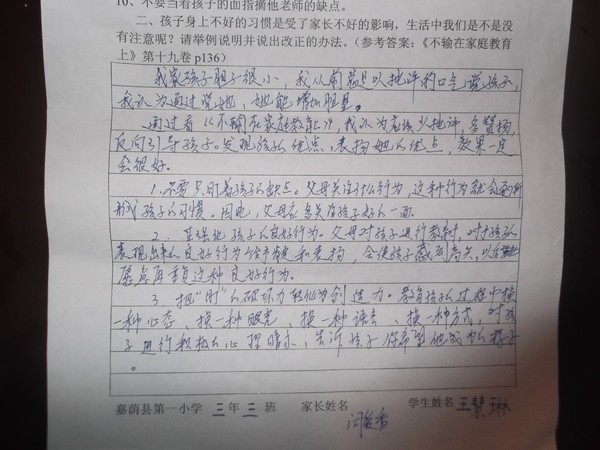 10、不要当着孩子的面指摘他老师的缺点。
二、孩子身上不好的习惯是受了家长不好的影响，生活中我们是不是没
有注意呢？请举例说明并说出改正的办法。（参考答案：《不输在家庭教育
上》第十九卷 p136）
我家孩子胆子很小，我从前总是以批评的口气說孩子，
我认为通过说她，她能增加胆量。
通过看《不输在家庭教能》，我认为应该少批评，多赞扬，
反向引导孩子。发现孩子的优点，表扬她的优点，效果一定
会很好。
1、不要只盯着孩子的缺点。父母关注什么行为，这种行为就会
形成孩子的习惯。因此，父母应当关注孩子好的一面。
2、正强化孩子的良好行为。父母对孩子进行教育时，对于孩子
表现出来的良好行为给予肯定和表扬，会使孩子感到高兴，以后
愿意再重复这种良好行为。
3、把“的”的破坏力转化为创造力。教育孩子的过程中换
一种心态，换一种眼光，换一种语言，换一种方式，对孩
子进行积极的心理暗示，告诉孩子你希望他成为的样子
。
嘉荫县第一小学 三 年 三 班 家长姓名 闫 学生姓名 王慧琳